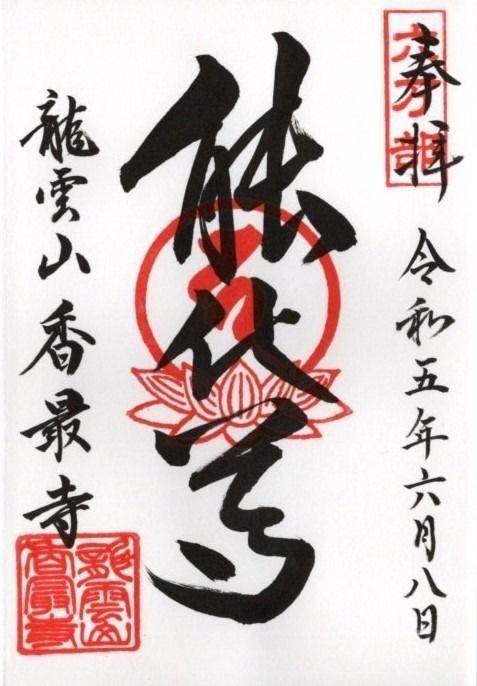 奉拝
令和五年六月八日
能化尊
龍雲山香最寺
龍雲山
香最寺